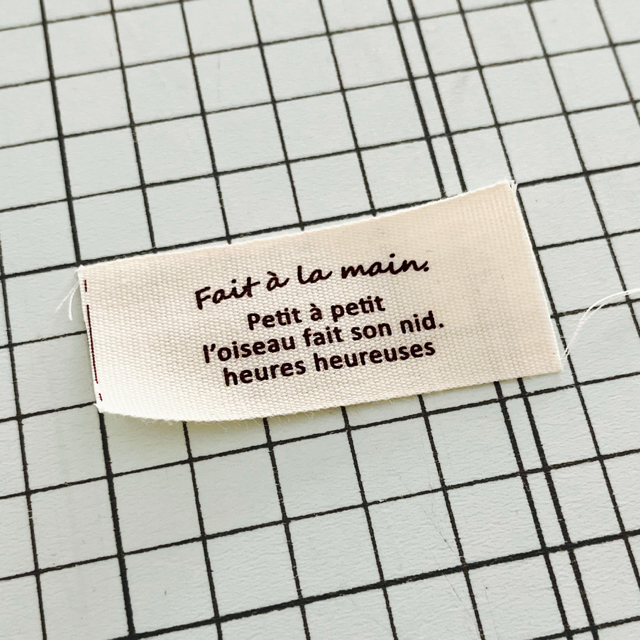 Fait à la main.
Petit à petit
l'oiseau fait son nid.
heures heureuses